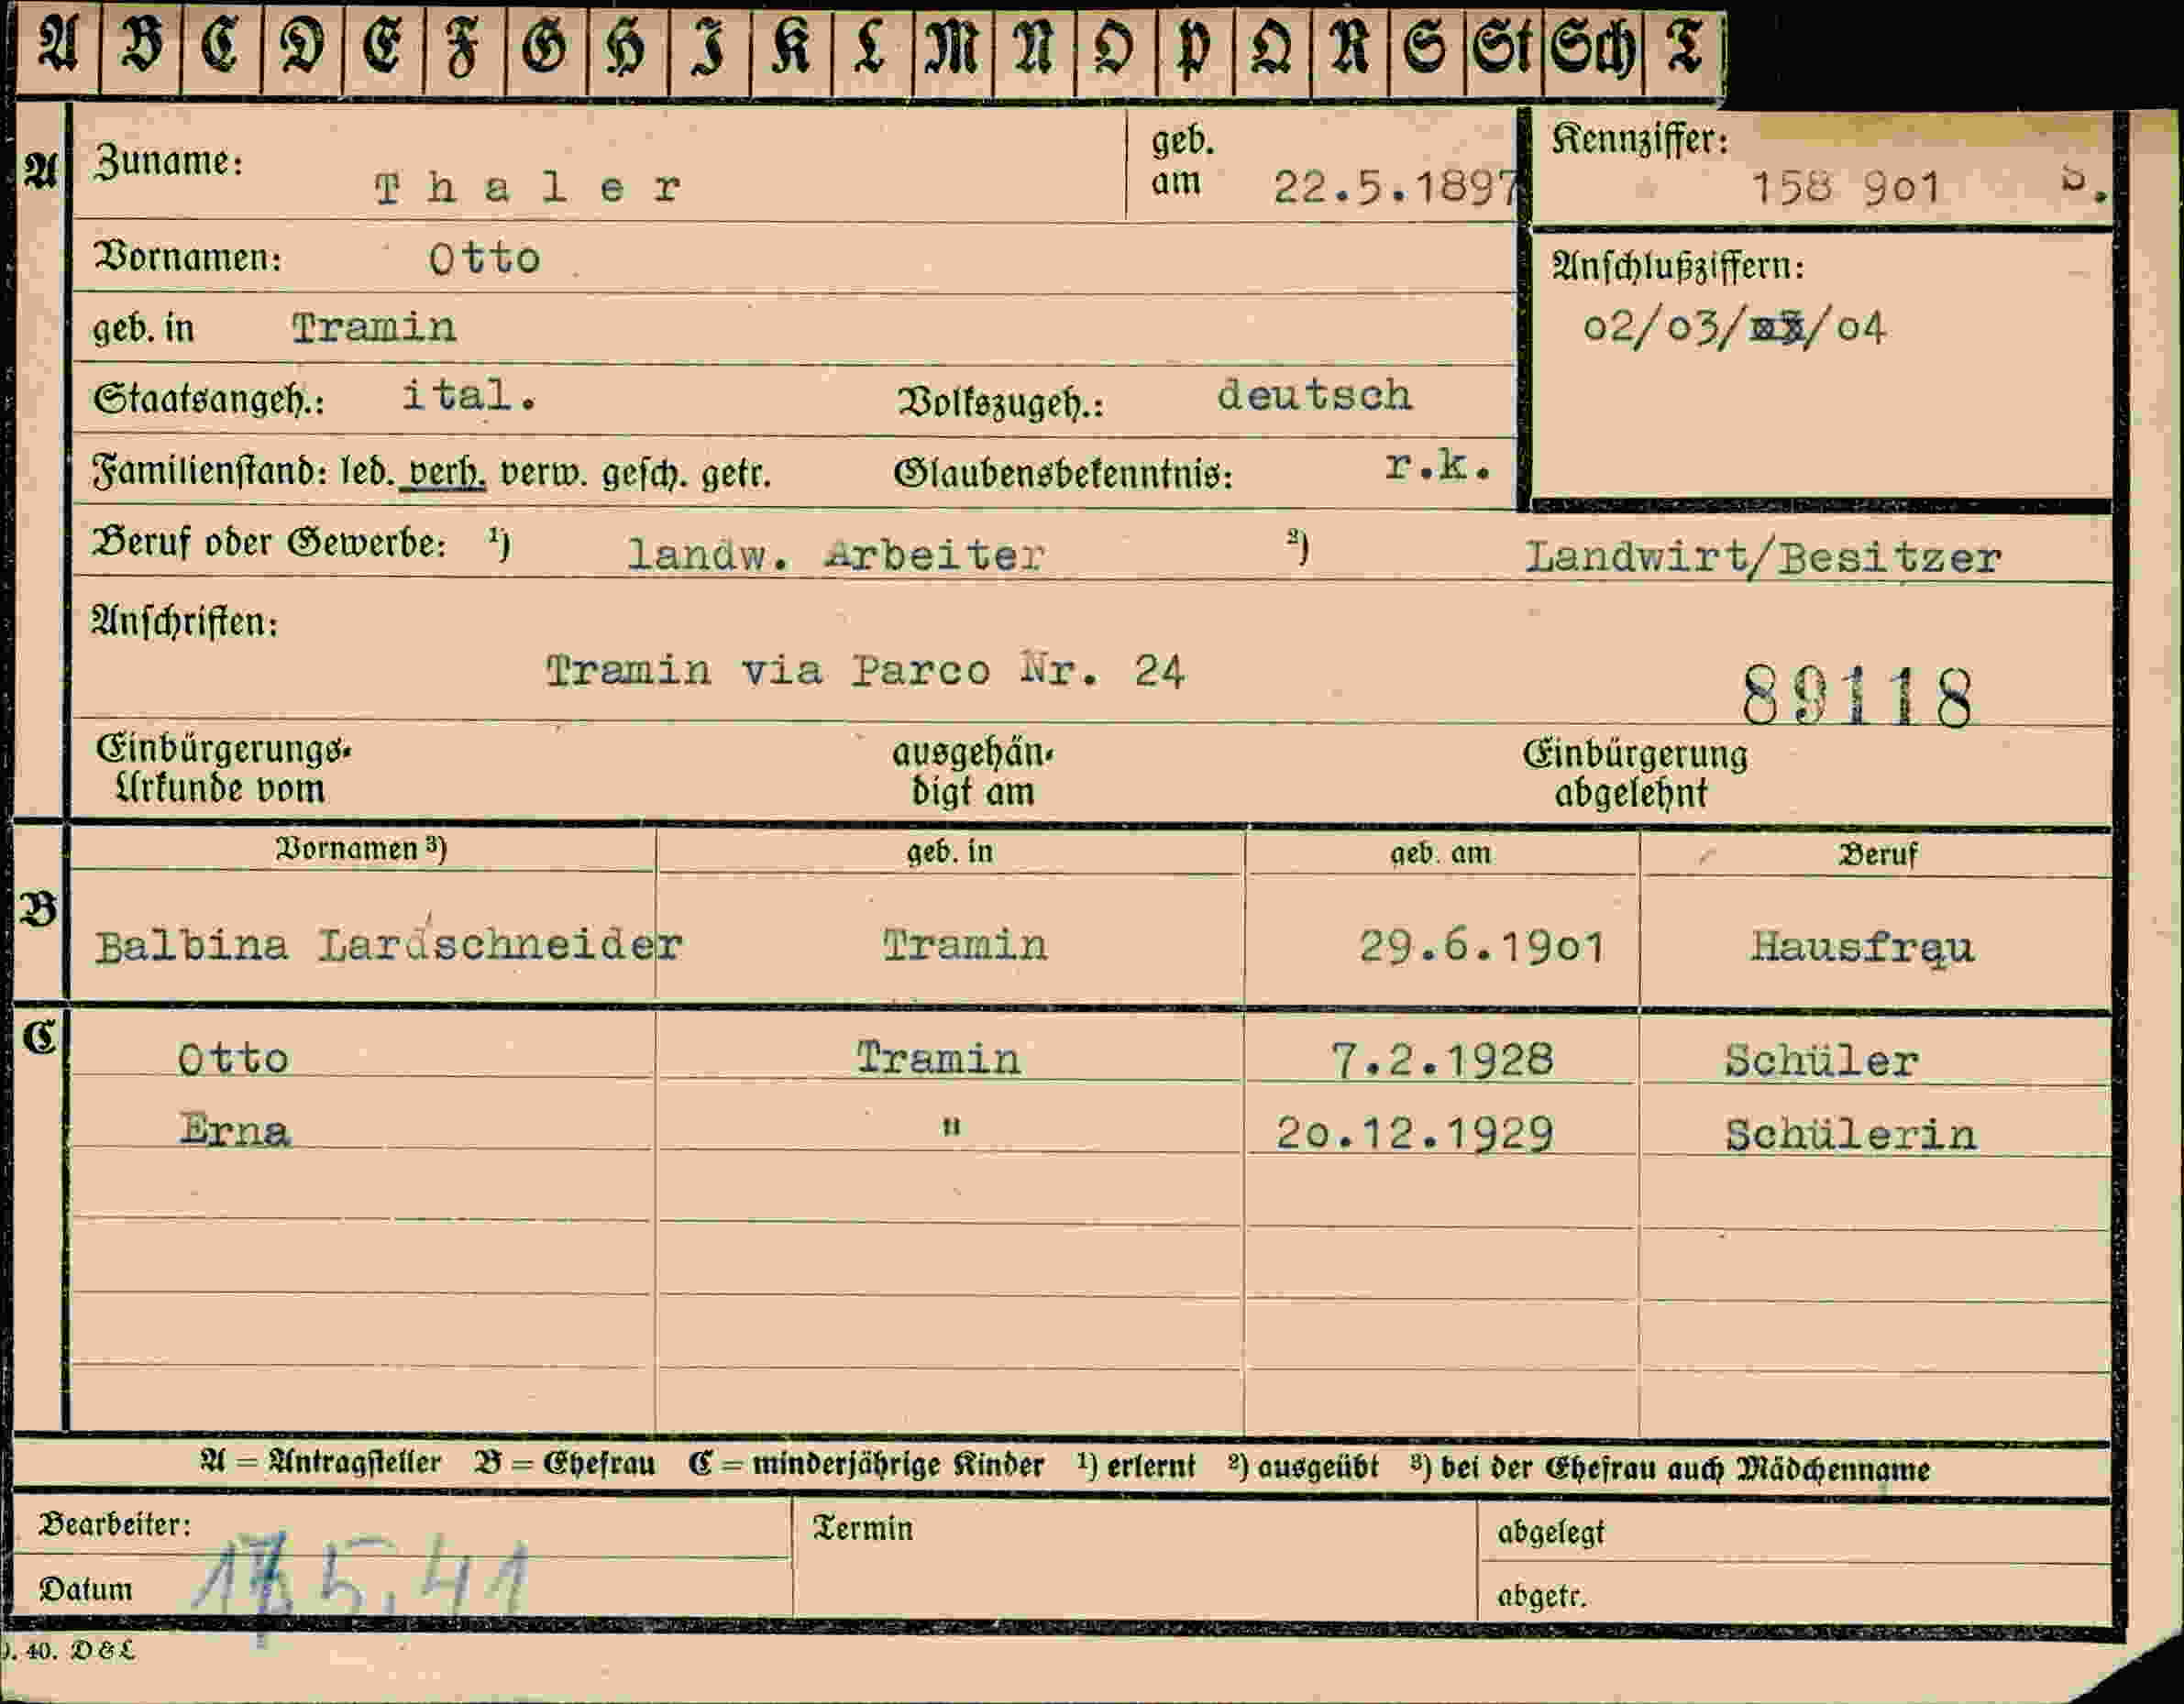 A B C D E F G H I K L M N O P Q R S St Sch T
A Zuname: Thaler geb. am 22.5.1897 Kennziffer: 158 9o1 S.
Vornamen: Otto
Anschlußziffern:
geb. in Tramin
o2/o3/ /o4
Staatsangeh.: ital. Volkszugeh.: deutsch
Familienstand: led. verh. verw. gesch. getr. Glaubensbekenntnis: r.k.
Beruf oder Gewerbe: ¹) landw. Arbeiter ²) Landwirt/Besitzer
Anschriften:
Tramin via Parco Nr. 24
89118
Einbürgerungs-Urkunde vom ausgehän-digt am Einbürgerung abgelehnt
Vornamen ³) geb. in geb. am Beruf
B Balbina Lardschneider Tramin 29.6.19o1 Hausfrau
C Otto Tramin 7.2.1928 Schüler
Erna " 2o.12.1929 Schülerin
A = Antragsteller B = Ehefrau C = minderjährige Kinder ¹) erlernt ²) ausgeübt ³) bei der Ehefrau auch Mädchenname
Bearbeiter: Termin abgelegt
Datum 5.41 abgetr.
. 40. D & L